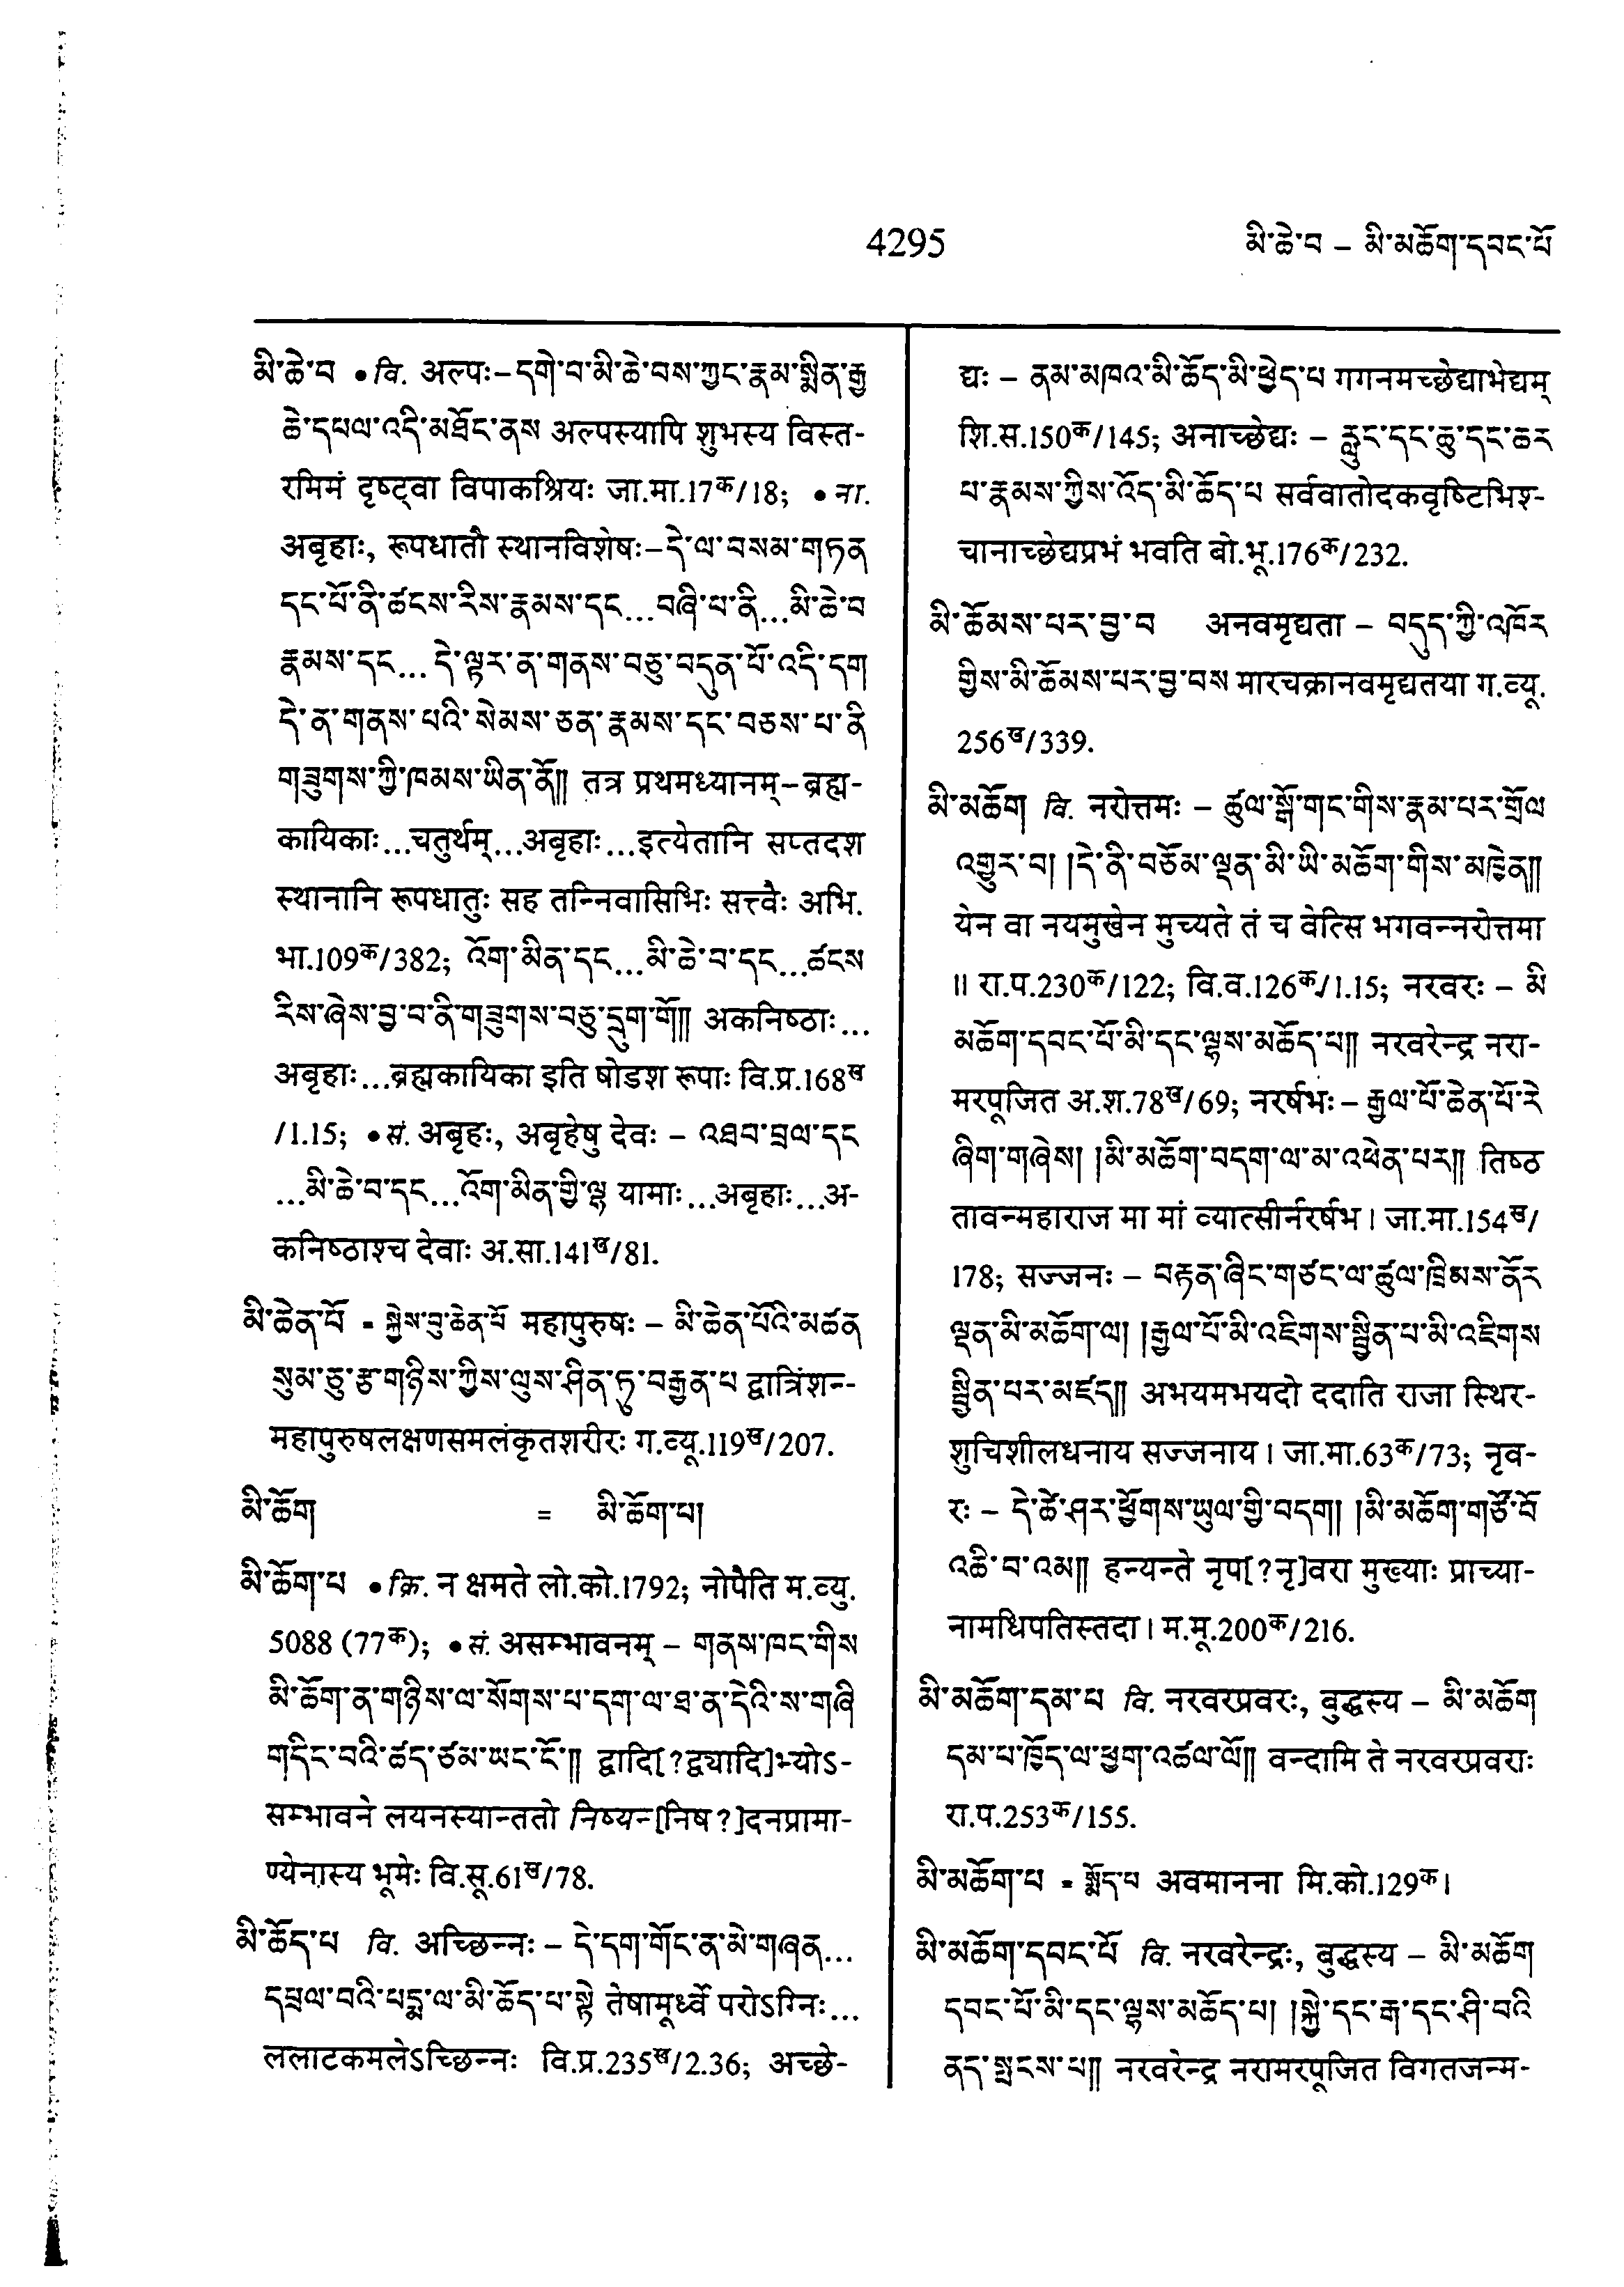 4295
མི་ཆེ་བ – མི་མཆོག་དབང་པོ
མི་ཆེ་བ •वि. अल्पः–དགེ་བ་མི་ཆེ་བས་ཀྱང་རྣམ་སྨིན་རྒྱ
ཆེ་དཔལ་འདི་མཐོང་ནས अल्पस्यापि शुभस्य विस्त-
रमिमं दृष्ट्वा विपाकश्रियः जा.मा.17क/18; •ना.
अबृहाः, रूपधातौ स्थानविशेषः–དེ་ལ་བསམ་གཏན
དང་པོ་ནི་ཚངས་རིས་རྣམས་དང...བཞི་པ་ནི...མི་ཆེ་བ
རྣམས་དང...དེ་ལྟར་ན་གནས་བཅུ་བདུན་པོ་འདི་དག
དེ་ན་གནས་པའི་སེམས་ཅན་རྣམས་དང་བཅས་པ་ནི
གཟུགས་ཀྱི་ཁམས་ཡིན་ནོ།། तत्र प्रथमध्यानम्–ब्रह्म-
कायिकाः...चतुर्थम्...अबृहाः...इत्येतानि सप्तदश
स्थानानि रूपधातुः सह तन्निवासिभिः सत्त्वैः अभि.
भा.109क/382; འོག་མིན་དང...མི་ཆེ་བ་དང...ཚངས
རིས་ཞེས་བྱ་བ་ནི་གཟུགས་བཅུ་དྲུག་གོ།། अकनिष्ठाः...
अबृहाः...ब्रह्मकायिका इति षोडश रूपाः वि.प्र.168ख
/1.15; •सं. अबृहः, अबृहेषु देवः – འཐབ་བྲལ་དང
...མི་ཆེ་བ་དང...འོག་མིན་གྱི་ལྷ यामाः...अबृहाः...अ-
कनिष्ठाश्च देवाः अ.सा.141ख/81.
མི་ཆེན་པོ = སྐྱེས་བུ་ཆེན་པོ महापुरुषः – མི་ཆེན་པོའི་མཚན
སུམ་ཅུ་རྩ་གཉིས་ཀྱིས་ལུས་ཤིན་ཏུ་བརྒྱན་པ द्वात्रिंशन्-
महापुरुषलक्षणसमलंकृतशरीरः ग.व्यू.119ख/207.
མི་ཆོག = མི་ཆོག་པ།
མི་ཆོག་པ •क्रि. न क्षमते लो.को.1792; नोपैति म.व्यु.
5088 (77क); •सं. असम्भावनम् – གནས་ཁང་གིས
མི་ཆོག་ན་གཉིས་ལ་སོགས་པ་དག་ལ་ཐ་ན་དེའི་ས་གཞི
གདིང་བའི་ཚད་ཙམ་ཡང་ངོ་།། द्वादि[?द्व्यादि]भ्योऽ-
सम्भावने लयनस्यान्ततो निष्यन्[निष?]दनप्रामा-
ण्येनास्य भूमेः वि.सू.61ख/78.
མི་ཆོད་པ वि. अच्छिन्नः – དེ་དག་གོང་ན་མེ་གཞན...
དཔྲལ་བའི་པདྨ་ལ་མི་ཆོད་པ་སྟེ तेषामूर्ध्वे परोऽग्निः...
ललाटकमलेऽच्छिन्नः वि.प्र.235ख/2.36; अच्छे-
द्यः – ནམ་མཁའ་མི་ཆོད་མི་ཕྱེད་པ गगनमच्छेद्याभेद्यम्
शि.स.150क/145; अनाच्छेद्यः – རླུང་དང་ཆུ་དང་ཆར
པ་རྣམས་ཀྱིས་འོད་མི་ཆོད་པ सर्ववातोदकवृष्टिभिश-
चानाच्छेद्यप्रभं भवति बो.भू.176क/232.
མི་ཆོམས་པར་བྱ་བ अनवमृद्यता – བདུད་ཀྱི་འཁོར
གྱིས་མི་ཆོམས་པར་བྱ་བས मारचक्रानवमृद्यतया ग.व्यू.
256ख/339.
མི་མཆོག वि. नरोत्तमः – ཚུལ་སྒོ་གང་གིས་རྣམ་པར་གྲོལ
འགྱུར་བ། །དེ་ནི་བཅོམ་ལྡན་མི་ཡི་མཆོག་གིས་མཁྱེན།།
येन वा नयमुखेन मुच्यते तं च वेत्सि भगवन्नरोत्तमा
॥ रा.प.230क/122; वि.व.126क/1.15; नरवरः – མི
མཆོག་དབང་པོ་མི་དང་ལྷས་མཆོད་པ།། नरवरेन्द्र नरा-
मरपूजित अ.श.78ख/69; नरर्षभः – རྒྱལ་པོ་ཆེན་པོ་རེ
ཞིག་གཞེས། །མི་མཆོག་བདག་ལ་མ་འཕེན་པར།། तिष्ठ
तावन्महाराज मा मां व्यात्सीर्नरर्षभ। जा.मा.154ख/
178; सज्जनः – བརྟན་ཞིང་གཙང་ལ་ཚུལ་ཁྲིམས་ནོར
ལྡན་མི་མཆོག་ལ། །རྒྱལ་པོ་མི་འཇིགས་སྦྱིན་པ་མི་འཇིགས
སྦྱིན་པར་མཛད།། अभयमभयदो ददाति राजा स्थिर-
शुचिशीलधनाय सज्जनाय। जा.मा.63क/73; नृव-
रः – དེ་ཚེ་ཤར་ཕྱོགས་ཡུལ་གྱི་བདག། །མི་མཆོག་གཙོ་བོ
འཆི་བ་འམ།། हन्यन्ते नृप[?नृ]वरा मुख्याः प्राच्या-
नामधिपतिस्तदा। म.मू.200क/216.
མི་མཆོག་དམ་པ वि. नरवरप्रवरः, बुद्धस्य – མི་མཆོག
དམ་པ་ཁྱོད་ལ་ཕྱག་འཚལ་ལོ།། वन्दामि ते नरवरप्रवराः
रा.प.253क/155.
མི་མཆོག་པ = སྨོད་པ अवमानना मि.को.129क।
མི་མཆོག་དབང་པོ वि. नरवरेन्द्रः, बुद्धस्य – མི་མཆོག
དབང་པོ་མི་དང་ལྷས་མཆོད་པ། །སྐྱེ་དང་རྒ་དང་ཤི་བའི
ནད་སྤངས་པ།། नरवरेन्द्र नरामरपूजित विगतजन्म-